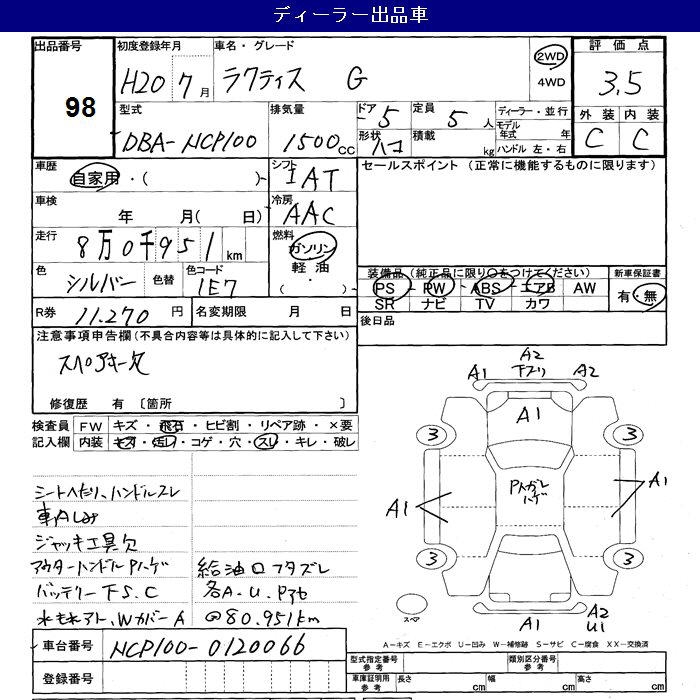 ディーラー出品車
出品番号 初度登録年月 車名・グレード 2WD 評価点
98 H20 7月 ラクティス G 4WD 3.5
型式 排気量 ドア 5 定員 5人 ディーラー・並行 外装 内装
DBA-NCP100 1500cc 形状 ハコ 積載 kg モデル年式 年 C C
ハンドル 左・右
車歴 自家用・( ) シフト IAT セールスポイント (正常に機能するものに限ります)
車検 年 月( 日) 冷房 AAC
走行 8万0千951km 燃料 ガソリン
軽油
・( )
色 シルバー 色替 色コード 1E7
装備品(純正品に限り○をつけてください) 新車保証書
PS PW ABS エアB AW 有・無
SR ナビ TV カワ
R券 11.270円 名変期限 月 日 後日品
注意事項申告欄(不具合内容等は具体的に記入して下さい)
スペアキー欠
修復歴 有 〔箇所 〕
検査員 FW キズ・飛石・ヒビ割・リペア跡・×要
記入欄 内装 キズ・汚レ・コゲ・穴・スレ・キレ・破レ
シートヘたり、ハンドルスレ
車内しみ
ジャッキ工具欠
アウターハンドルPハゲ
バッテリー下S.C
水もれアト、WカバーA
給油口フタズレ
各A.U.P
@80.951km
A1 A2 下スリ A2
A1
3 3
A1 A1
Pハガレ
ハゲ
3 3
スペア A1 A2
U1
A-キズ E-エクボ U-凹み W-補修跡 S-サビ C-腐食 XX-交換済
車台番号 NCP100-0120066
登録番号
型式指定番号 参考 類別区分番号 参考
車庫証明用 参考 長さ cm 幅 cm 高さ cm